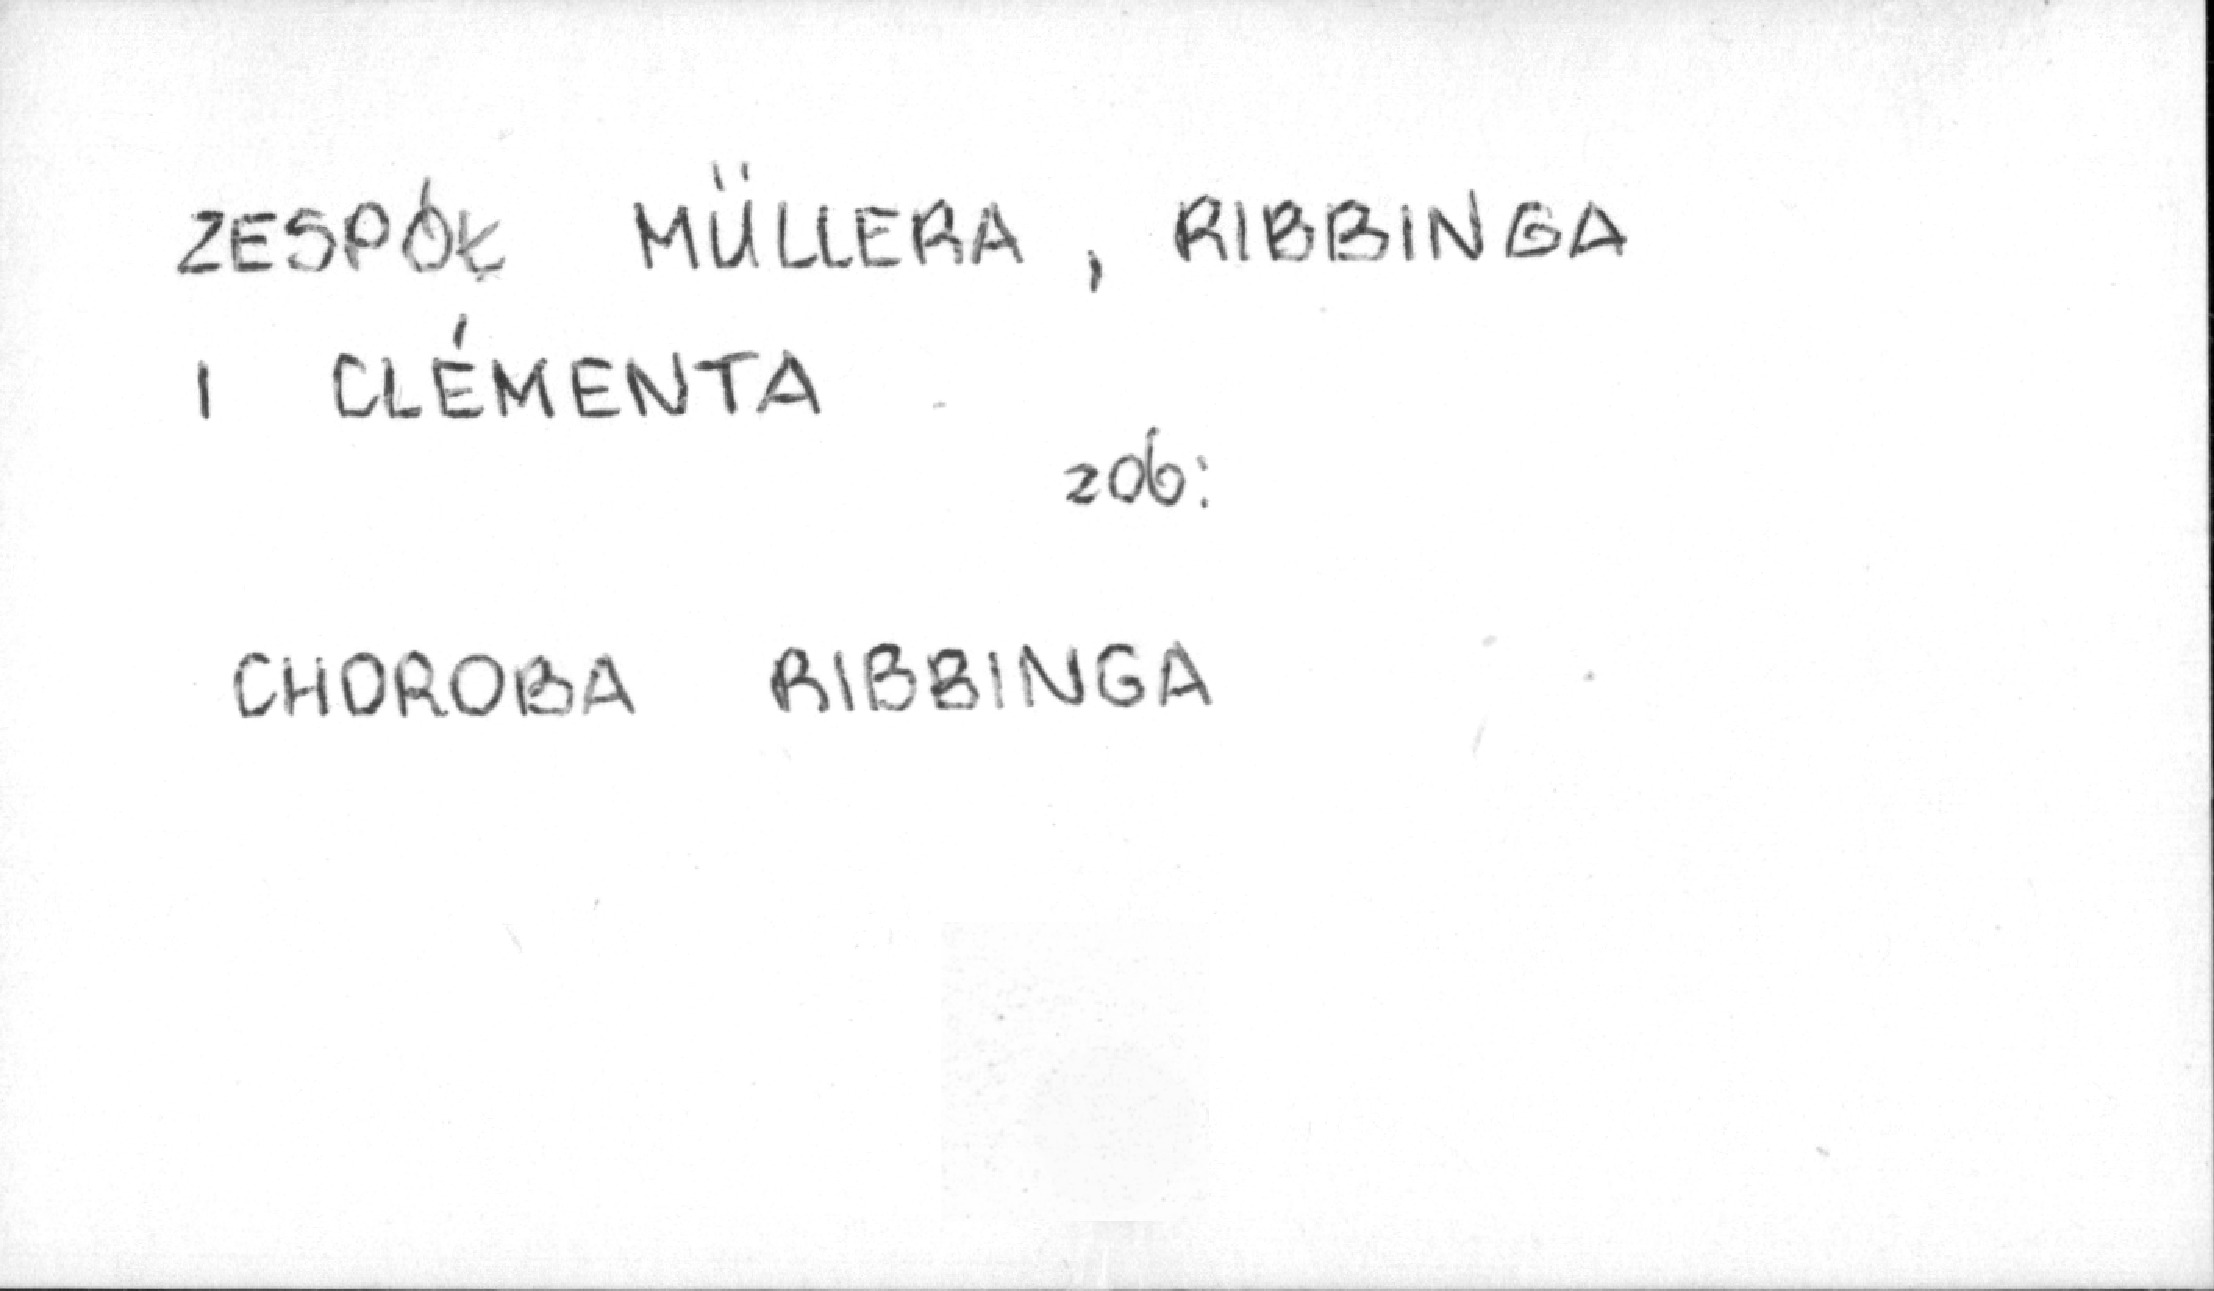 ZESPÓŁ MÜLLERA, RIBBINGA
I CLÉMENTA
zob:
CHOROBA RIBBINGA